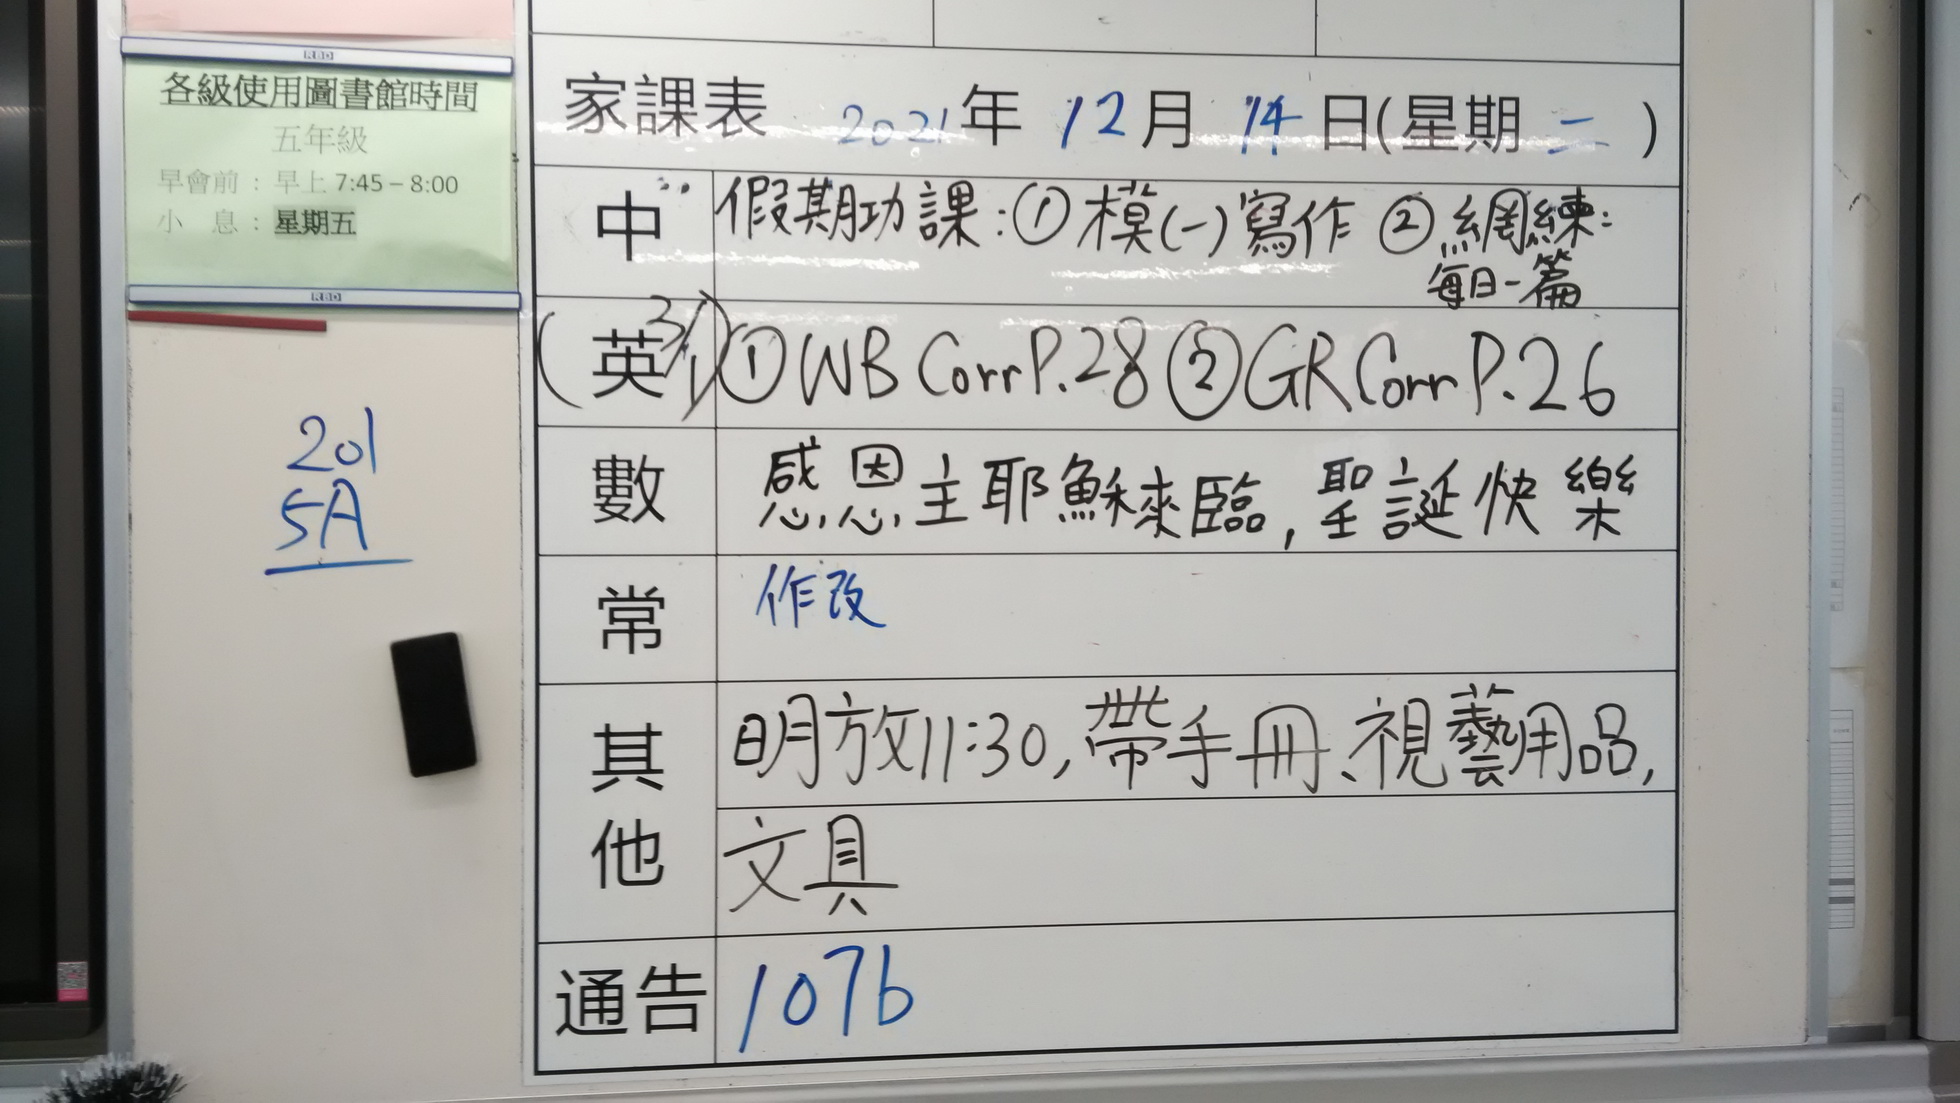 RBD
各級使用圖書館時間
五年級
早會前：早上 7:45 – 8:00
小 息：星期五
RBD
201
5A
家課表 2021年 12月 14日(星期二)
中 假期功課:①模(一)寫作 ②網練:
每日一篇
(英3/1) ①WB Corr P.28 ②GR Corr P.26
數 感恩主耶穌來臨,聖誕快樂
常 作改
其他 明放11:30,帶手冊、視藝用品,
文具
通告 107b